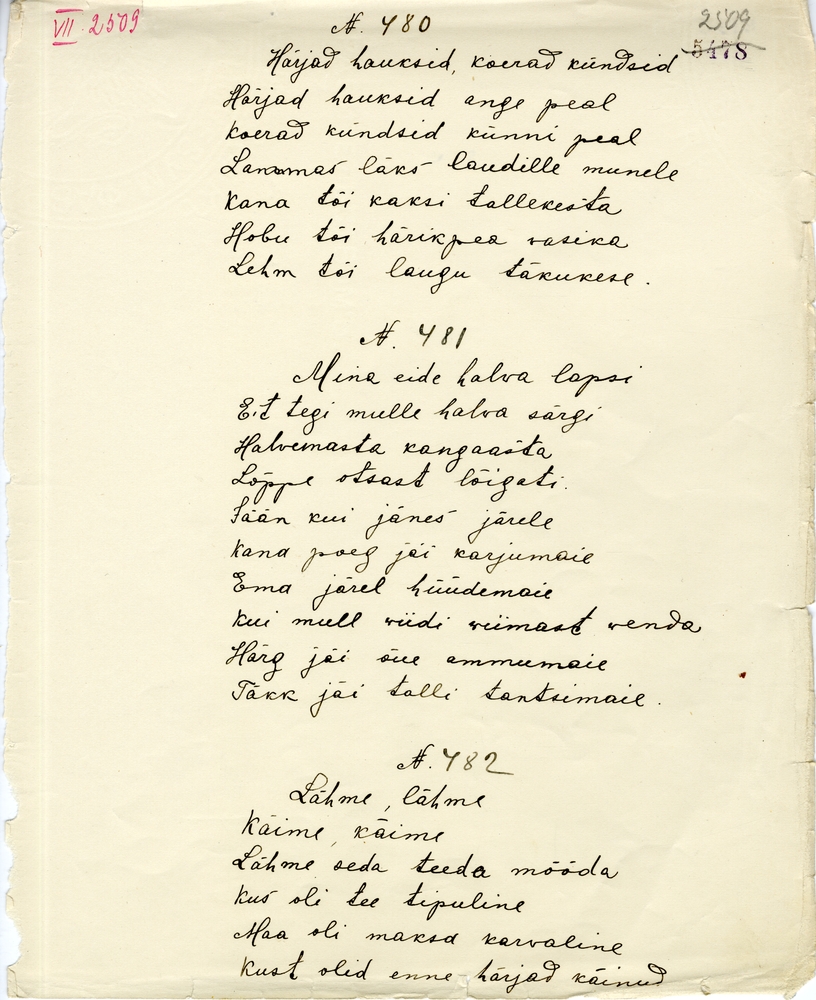 VII 2509
N. 480
2509
5478
Härjad hauksid, koerad kündsid
Härjad hauksid ange peal
Koerad kündsid künni peal
Lammas läks laudille munele
Kana tõi kaksi tallekesta
Hobu tõi härikpea wasika
Lehm tõi laugu täkukese.
N. 481
Mina eide halwa lapsi
Eit tegi mulle halwa särgi
Halvemasta kangaasta
Lõppe otsast lõigati.
Jään kui jänes järele
Kana poeg jäi karjumaie
Ema järel hüüdemaie
Kui mull wiidi wiimast wenda
Härg jäi õue ammumaie
Täkk jäi talli tantsimaie.
N. 482
Lähme, lähme
Käime, käime
Lähme seda teeda mööda
Kus oli tee tipuline
Maa oli maksa karvaline
Kust olid enne härjad käinud